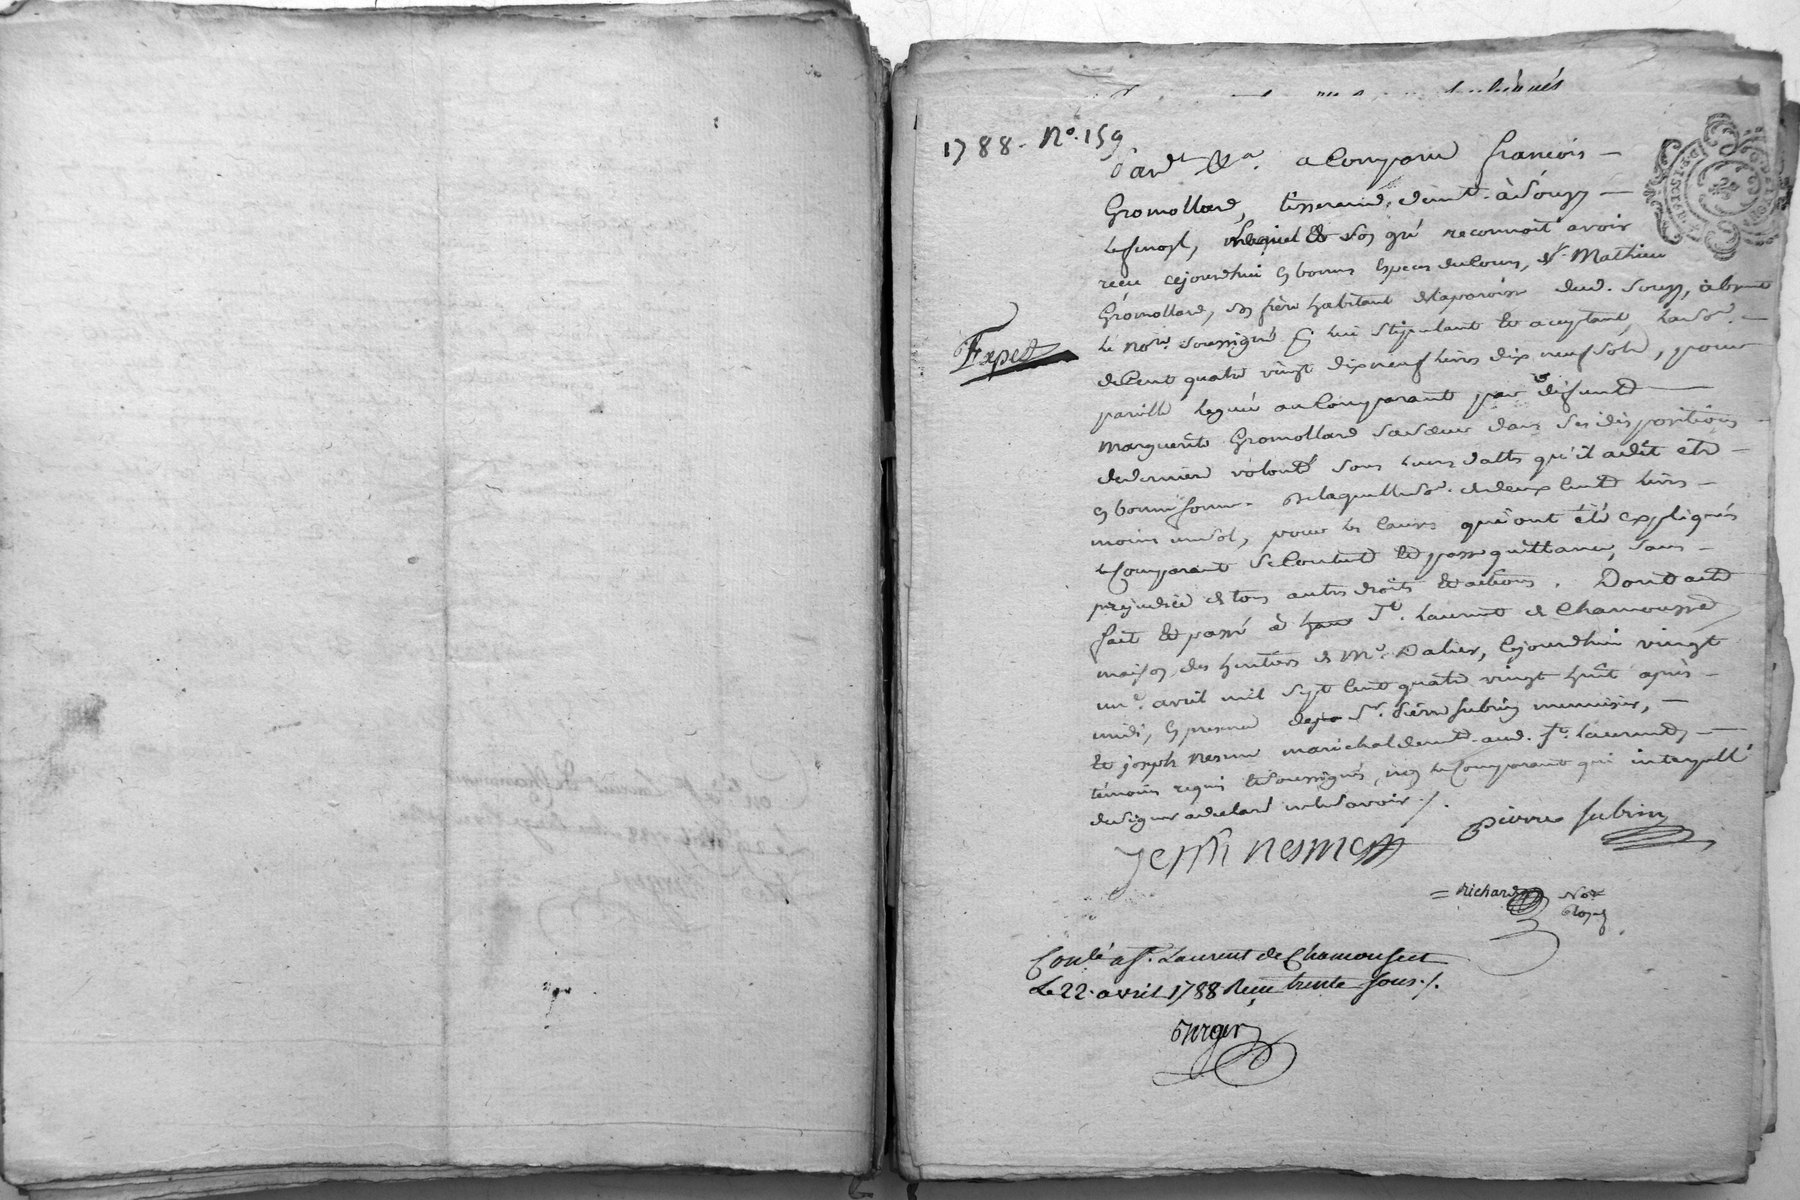 1788. N°. 159
Pard.t &a. a Comparu françois
Gromollard, tisserand, demt. à Souzy
lequel de son gré reconnoit avoir
reçu cejourdhui en bonnes especes du Cours, de Mathieu
Gromollard, son frère habitant de la paroisse dud. Souzy, absent
le no.re soussigné pr. lui stipulant et aceptant, la so.e
Exped
de Cent quatre vingt dix neuf livres dix neuf sols, pour
pareille leguée au Comparant par défunte
Marguerite Gromollard sa sœur dans ses dispositions
de derniere volonté sous leurs dattes qu'il a dit etre
en bonne forme. De laquelle so.e de deux Cent livres
moins un sol, pour les causes qui ont été expliquées
le Comparant se Contente et passe quittance, sans
prejudice de tous autres droits et actions. Dont acte
fait et passé à St. Laurent de Chamousset
maison des heritiers de Me. Dalier, Cejourdhui vingt
un e. avril mil sept Cent quatre vingt huit après
midi, en presence de Sr. Pierre Subrin menuisier,
et joseph Nesme maréchal demt. aud. St. Laurent,
témoins requis et soussignés, non le Comparant qui interpellé
de signer a declaré ne le savoir ./.
Pierre Subrin
Joseph nesme
= Richard Nore
Royal
Conlé a St. Laurent de Chamousset
Le 22 avril 1788 Reçu trente sous ./.